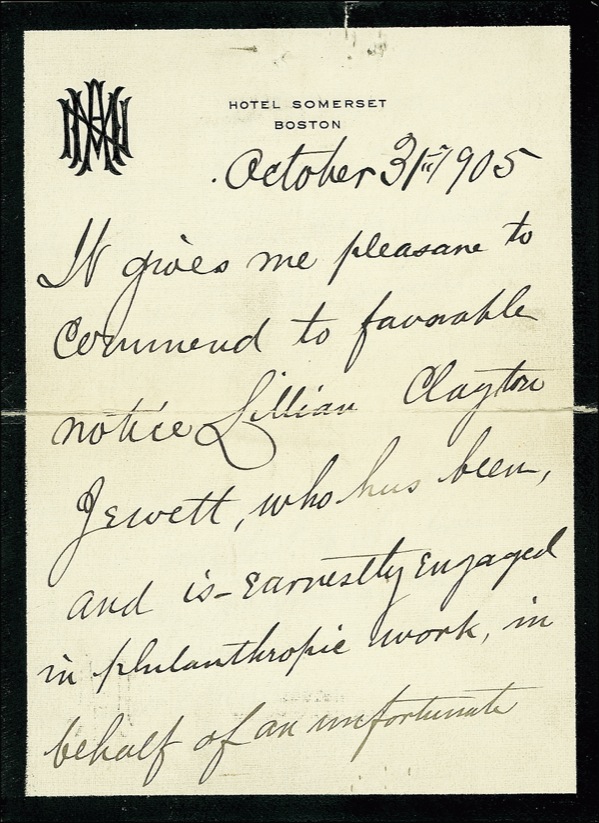 HOTEL SOMERSET
BOSTON
October 31st 1905
It gives me pleasure to
Commend to favorable
notice Lillian Clayton
Jewett, who has been,
and is - earnestly engaged
in philanthropic work, in
behalf of an unfortunate